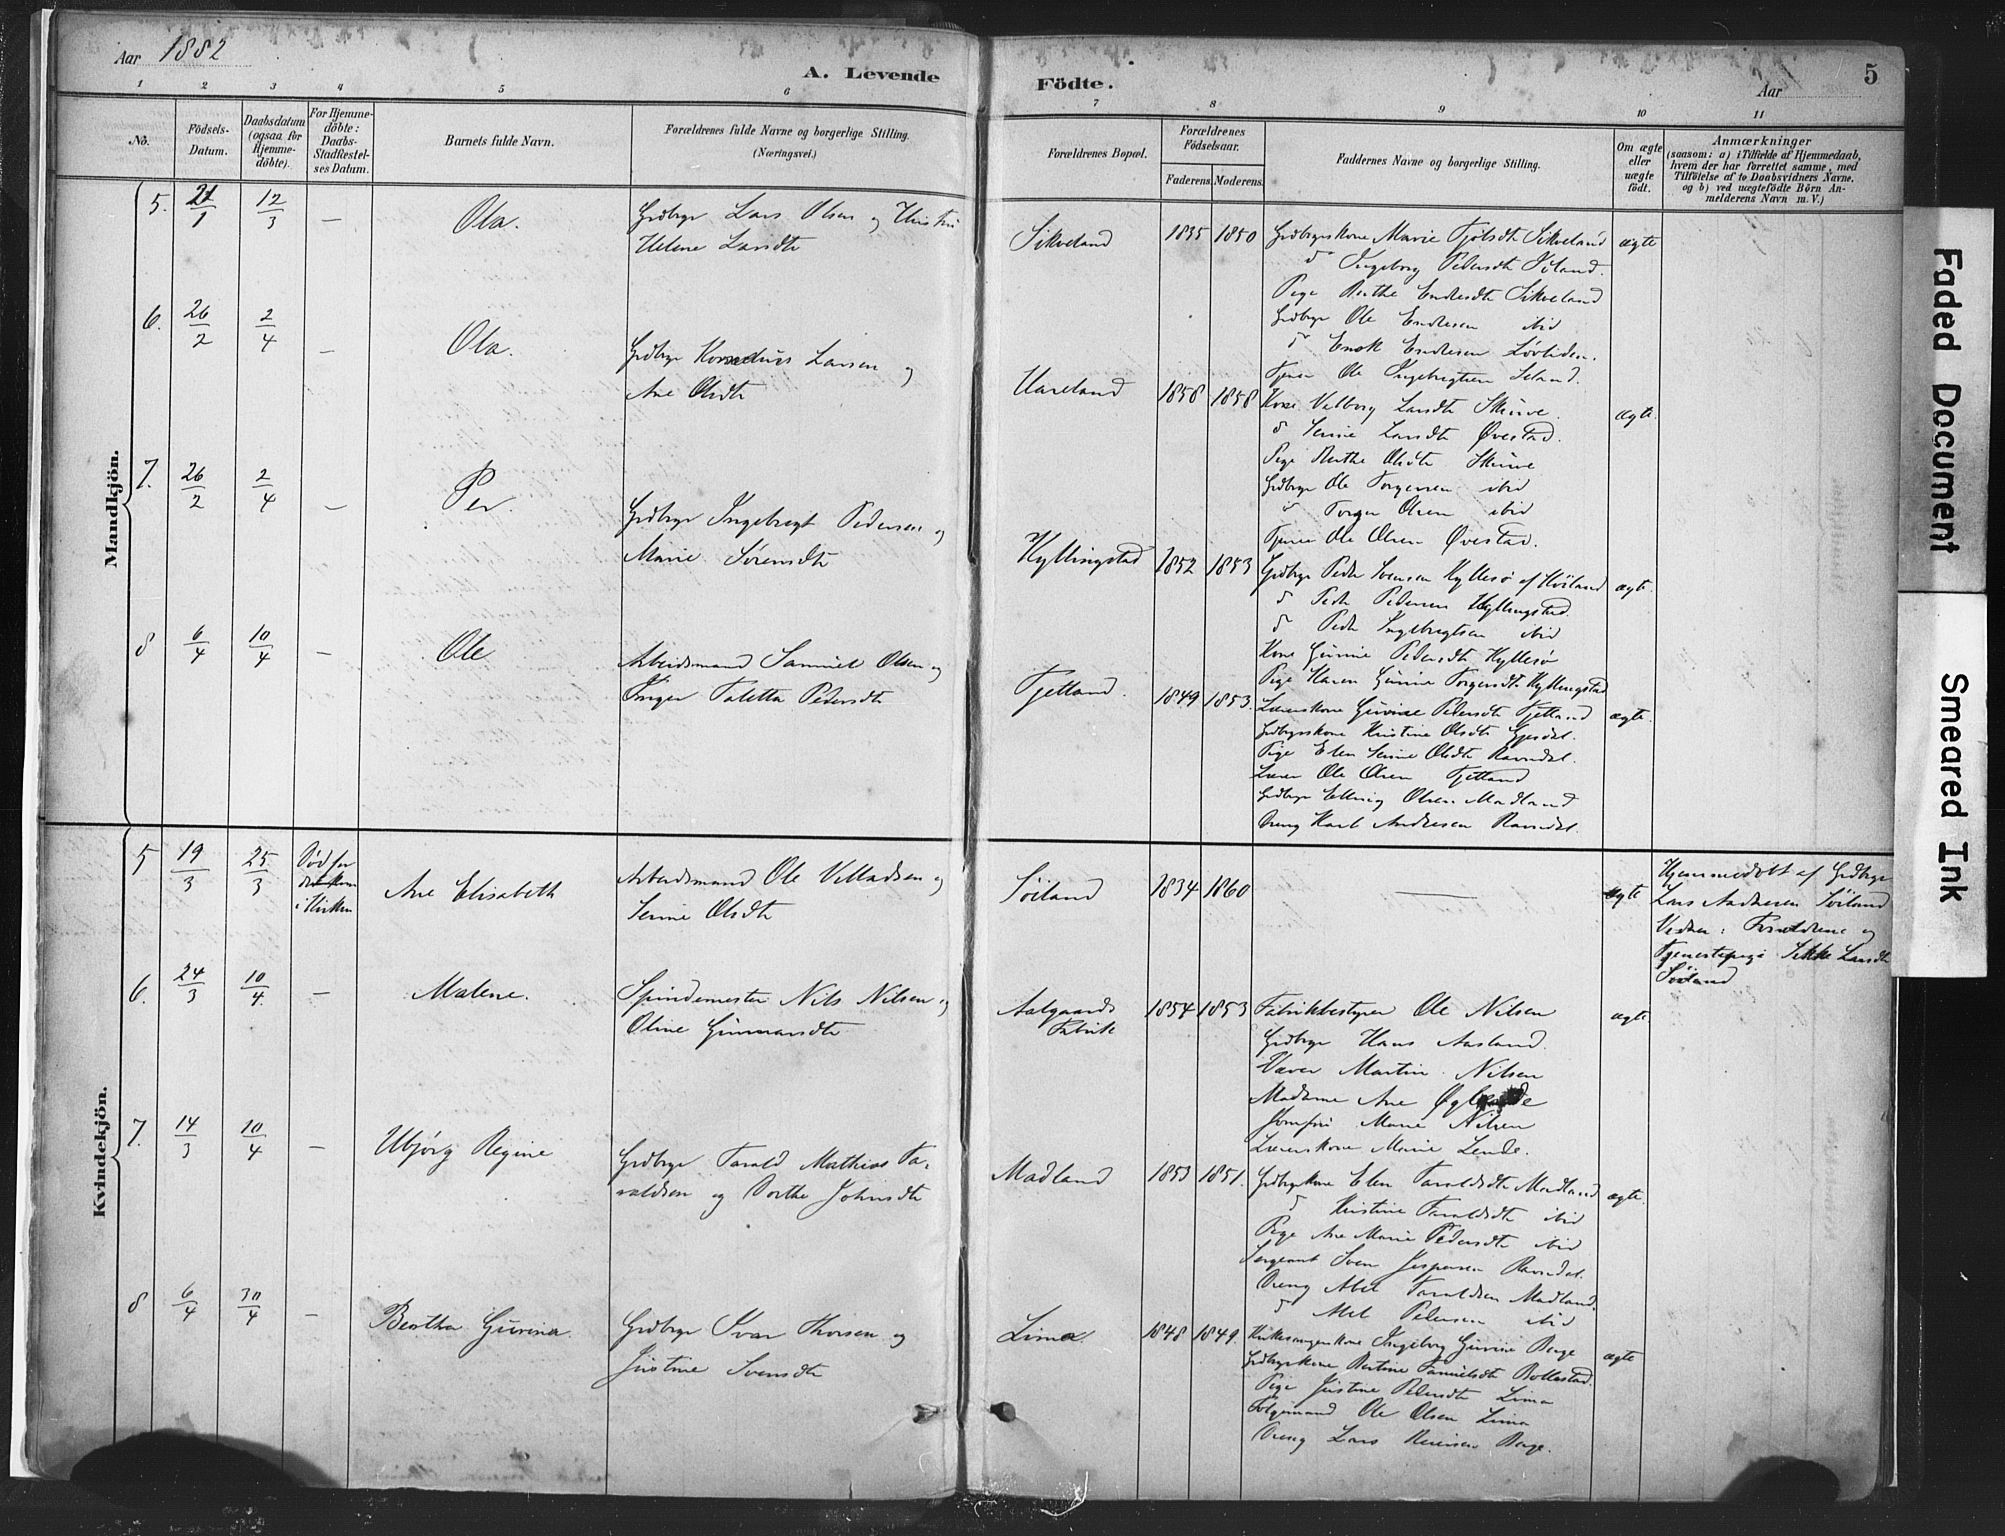 Aar 1882
A. Levende
Födte.
Aar
5
1 2 3 4 5 6 7 8 9 10 11
No.
Födsels-
Datum.
Daabsdatum
(ogsaa for
Hjemme-
döbte).
For Hjemme-
döbte:
Daabs-
Stadfæstel-
ses Datum.
Barnets fulde Navn.
Forældrenes fulde Navne og borgerlige Stilling.
(Næringsvei.)
Forældrenes Bopæl.
Forældrenes
Födselsaar.
Faderens.
Moderens.
Faddernes Navne og borgerlige Stilling.
Om ægte
eller
uægte
födt.
Anmærkninger
(saasom: a) i Tilfælde af Hjemmedaab,
hvem der har forrettet samme, med
Tilföielse af to Daabsvidners Navne.
og b) ved uægtefödte Börn An-
melderens Navn m. V.)
Mandkjön.
5. 21/1 12/3 — Ola.
Grdbrgr Lars Olsen og Hustru
Helene Larsdtr
Sikveland 1835 1850
Grdbrgrskone Marie Tjølsdtr Sikveland
do Ingeborg Pedersdtr
Pige Berthe Endresdtr Sikveland
Grdbrgr Ole Endresen ibid
do Enok Endresen
Tjener Ole Ingebregtsen
ægte
6. 26/2 2/4 — Ola.
Grdbrgr Kornelius Larsen og
Ane Olsdtr
Hareland 1858 1858
Kone Valborg Larsdtr Skurve.
do Serine Larsdtr Øvestad.
Pige Berthe Olsdtr Skurve
Grdbrgr Ole Torgersen ibid
do Torger Olsen ibid
Tjener Ole Olsen Øvestad.
ægte.
7. 26/2 2/4 — Per.
Grdbrgr Ingebregt Pedersen og
Marie Sørensdtr
Kyllingstad 1852 1853
Grdbrgr Peder Svensen Kyllesø af Høiland
do Peder Pedersen Kyllingstad
do Peder Ingebregtsen ibid
Kone Gurine Pedersdtr Kyllesø
Pige Karen Gurine Torgersdtr Kyllingstad
ægte.
8 6/4 10/4 — Ole
Arbeidsmand Samuel Olsen og
Inger Taletta Pedersdtr
Fjetland. 1849 1853.
Lærerskone Gurine Pedersdtr Fjetland
Grdbrgrskone Kristine Olsdtr Gjesdal.
Pige Elen Serine Olsdtr Ravndal.
Lærer Ole Olsen Fjetland
Grdbrgr Elling Olsen Madland
Dreng Karl Andresen Ravndal.
ægte.
Kvindekjön.
5 19/3 25/3
Død før
det kom
i Kirken
Ane Elisabeth
Arbeidsmand Ole Villadsen og
Serine Olsdtr
Søiland 1834 1860 —
ægte
Hjemmedøbt af Grdbrgr
Lars Andresen Søiland
Vidner: Forældrene og
Tjenestepige Sikke Larsdtr
Søiland
6. 24/3 10/4. — Malene.
Spindemester Nils Nilsen og
Oline Gunnarsdtr
Aalgaards
Fabrik
1854 1853
Fabrikbestyrer Ole Nilsen
Grdbrgr Hans Aasland.
Væver Martin Nilsen
Madame Ane
Jomfru Marie Nilsen
Lærerskone Marie Lende.
ægte
7. 14/3 10/4 — Ubjørg Regine
Grdbrgr Tarald Mathias Ta-
raldsen og Dorthe Johnsdtr
Madland 1853 1851.
Grdbrgrkone Elen Taraldsdtr Madland
do Kristine Taraldsdtr ibid
Pige Ane Marie Pedersdtr ibid
Sergeant Sven Jespersen Ravndal.
Dreng Abel Taraldsen Madland.
do Abel Pedersen ibid
ægte.
8 6/4 30/4 — Bertha Gurina.
Grdbrgr Ivar Thorsen og
Justine Svensdtr
Lima 1848 1849.
Kirkesangerkone Ingeborg Gurine Berge
Grdbrgrkone Bertine Samuelsdtr Bollestad.
Pige Justine Pedersdtr Lima
Folgemand Ole Olsen Lima
Dreng Lars Reinersen Berge.
ægte
Faded Document
Smeared Ink